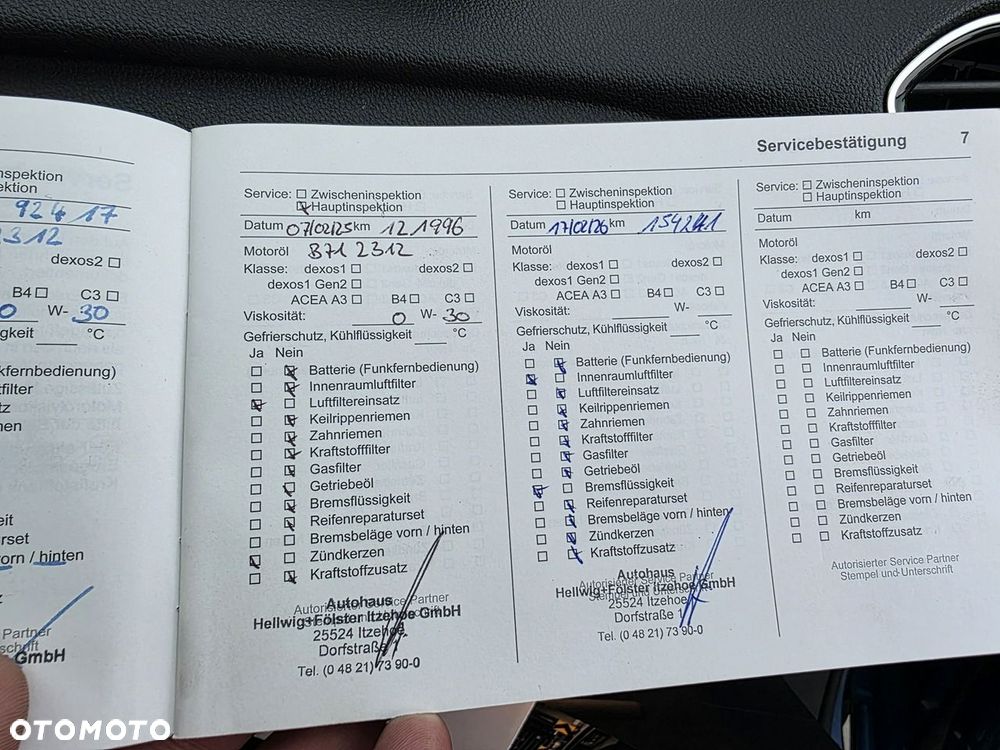 nspektion
ektion
92417
2312
dexos2
B4 C3
0 W- 30
sigkeit °C
kfernbedienung)
tfilter
tz
men
eit
orn / hinten
z
Partner
schrift
GmbH
Servicebestätigung 7
Service: Zwischeninspektion
Hauptinspektion
Datum 07/02/25 km 121996
Motoröl B71 2312
Klasse: dexos1 dexos2
dexos1 Gen2
ACEA A3 B4 C3
Viskosität: 0 W- 30
Gefrierschutz, Kühlflüssigkeit °C
Ja Nein
Batterie (Funkfernbedienung)
Innenraumluftfilter
Luftfiltereinsatz
Keilrippenriemen
Zahnriemen
Kraftstofffilter
Gasfilter
Getriebeöl
Bremsflüssigkeit
Reifenreparaturset
Bremsbeläge vorn / hinten
Zündkerzen
Kraftstoffzusatz
Autorisierter Service Partner
Autohaus
Hellwig+Fölster Itzehoe GmbH
25524 Itzehoe
Dorfstraße
Tel. (0 48 21) 73 90-0
Service: Zwischeninspektion
Hauptinspektion
Datum 17/02/26 km 154241
Motoröl
Klasse: dexos1 dexos2
dexos1 Gen2
ACEA A3 B4 C3
Viskosität: W-
Gefrierschutz, Kühlflüssigkeit °C
Ja Nein
Batterie (Funkfernbedienung)
Innenraumluftfilter
Luftfiltereinsatz
Keilrippenriemen
Zahnriemen
Kraftstofffilter
Gasfilter
Getriebeöl
Bremsflüssigkeit
Reifenreparaturset
Bremsbeläge vorn / hinten
Zündkerzen
Kraftstoffzusatz
Autorisierter Service Partner
Autohaus
Hellwig+Fölster Itzehoe GmbH
25524 Itzehoe
Dorfstraße
Tel. (0 48 21) 73 90-0
Service: Zwischeninspektion
Hauptinspektion
Datum km
Motoröl
Klasse: dexos1 dexos2
dexos1 Gen2
ACEA A3 B4 C3
Viskosität: W-
Gefrierschutz, Kühlflüssigkeit °C
Ja Nein
Batterie (Funkfernbedienung)
Innenraumluftfilter
Luftfiltereinsatz
Keilrippenriemen
Zahnriemen
Kraftstofffilter
Gasfilter
Getriebeöl
Bremsflüssigkeit
Reifenreparaturset
Bremsbeläge vorn / hinten
Zündkerzen
Kraftstoffzusatz
Autorisierter Service Partner
Stempel und Unterschrift
OTOMOTO